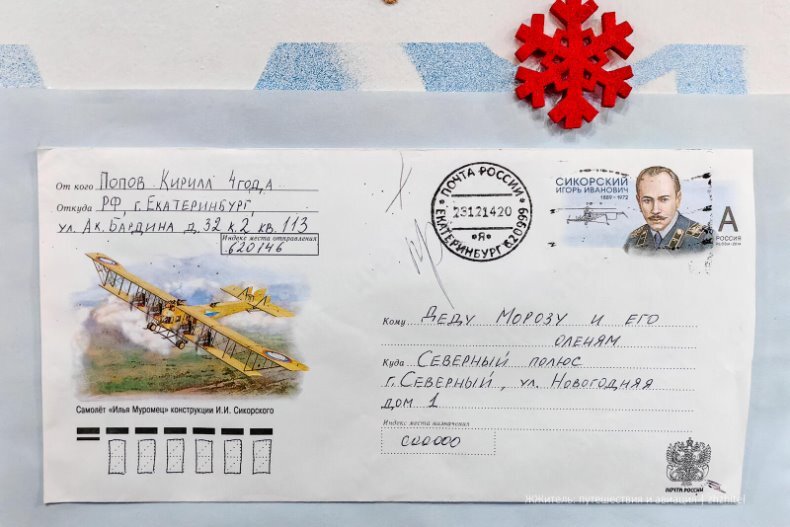 От кого Попов Кирилл 4 года
Откуда РФ, г. Екатеринбург,
ул. Ак. Бардина д. 32 к. 2 кв. 113
Индекс места отправления
620146
ПОЧТА РОССИИ
23121420
ЕКАТЕРИНБУРГ 620999
«Я»
СИКОРСКИЙ
ИГОРЬ ИВАНОВИЧ
1889-1972
А
РОССИЯ
Кому Деду Морозу и его
оленям
Куда Северный полюс
г. Северный, ул. Новогодняя
дом 1
Индекс места назначения
000000
Самолёт «Илья Муромец» конструкции И.И. Сикорского
ПОЧТА РОССИИ
ЖЖитель: путешествия и авиация | zhzhitel